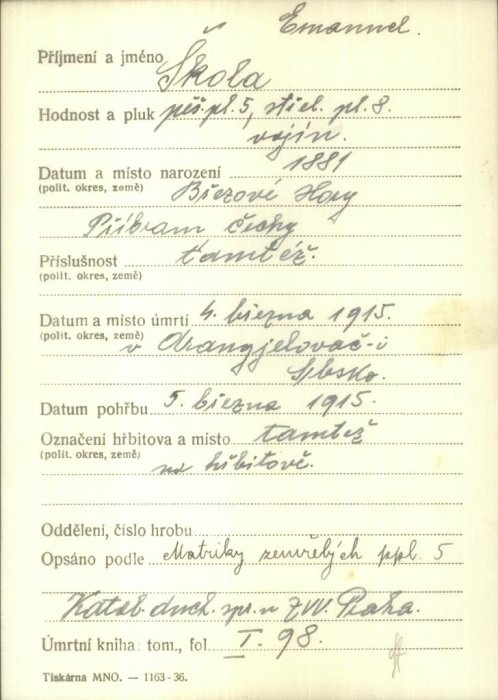 Emanuel.
Příjmení a jméno Škola
Hodnost a pluk pěš. pl. 5, střel. pl. 8.
vojín.
Datum a místo narození 1881
(polit. okres, země) Březové Hory
Příbram Čechy
Příslušnost tamtéž.
(polit. okres, země)
Datum a místo úmrtí 4. března 1915.
(polit. okres, země) v Arangjelovač-i
Srbsko.
Datum pohřbu 5. března 1915.
Označení hřbitova a místo tamtéž
(polit. okres, země) na hřbitově.
Oddělení, číslo hrobu
Opsáno podle Matriky zemřelých ppl. 5
Katol. duch. spr. u ZVV. Praha.
Úmrtní kniha: tom., fol. I. 98.
Tiskárna MNO. — 1163-36.